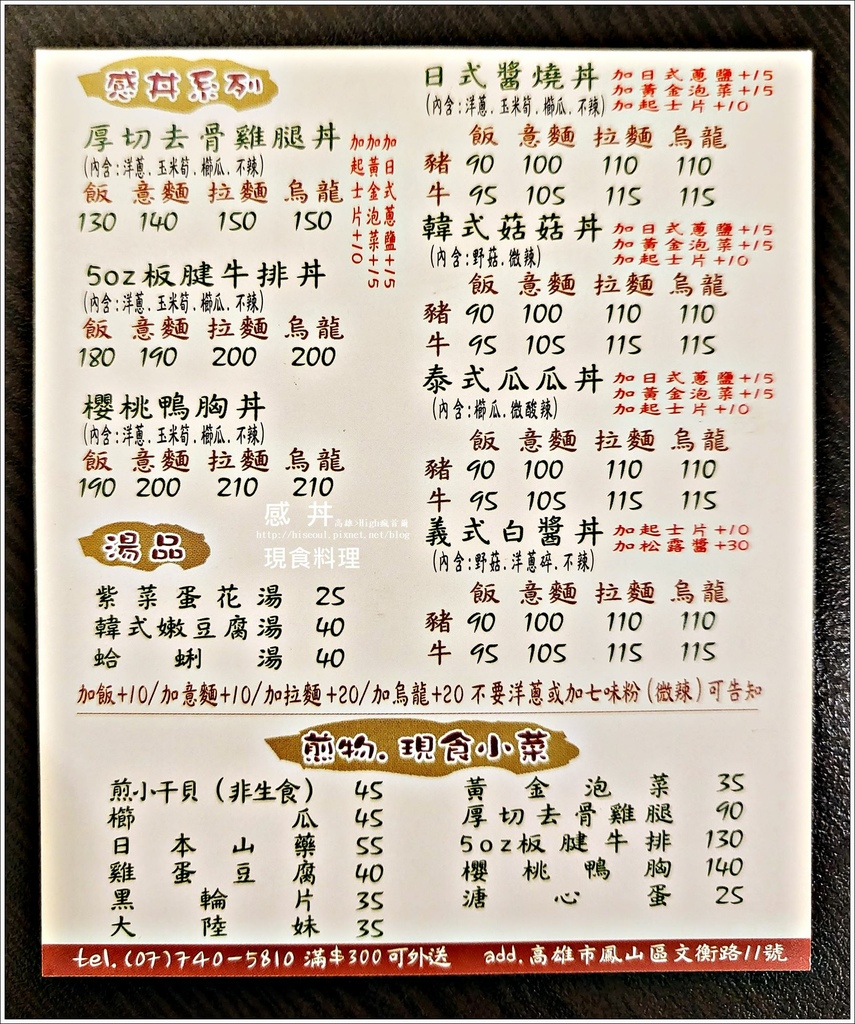 感丼系列
厚切去骨雞腿丼
(內含:洋蔥.玉米筍.櫛瓜.不辣)
飯 意麵 拉麵 烏龍
130 140 150 150
加日式蔥鹽+15
加黃金泡菜+15
加起士片+10
5oz板腱牛排丼
(內含:洋蔥.玉米筍.櫛瓜.不辣)
飯 意麵 拉麵 烏龍
180 190 200 200
櫻桃鴨胸丼
(內含:洋蔥.玉米筍.櫛瓜.不辣)
飯 意麵 拉麵 烏龍
190 200 210 210
湯品
紫菜蛋花湯 25
韓式嫩豆腐湯 40
蛤蜊湯 40
日式醬燒丼 加日式蔥鹽+15
加黃金泡菜+15
(內含:洋蔥.玉米筍.櫛瓜.不辣) 加起士片+10
飯 意麵 拉麵 烏龍
豬 90 100 110 110
牛 95 105 115 115
韓式菇菇丼 加日式蔥鹽+15
加黃金泡菜+15
(內含:野菇.微辣) 加起士片+10
飯 意麵 拉麵 烏龍
豬 90 100 110 110
牛 95 105 115 115
泰式瓜瓜丼 加日式蔥鹽+15
加黃金泡菜+15
(內含:櫛瓜.微酸辣) 加起士片+10
飯 意麵 拉麵 烏龍
豬 90 100 110 110
牛 95 105 115 115
義式白醬丼 加起士片+10
加松露醬+30
(內含:野菇.洋蔥碎.不辣)
飯 意麵 拉麵 烏龍
豬 90 100 110 110
牛 95 105 115 115
感丼 高雄
http://hiseoul.pixnet.net/blog
現食料理
加飯+10/加意麵+10/加拉麵+20/加烏龍+20 不要洋蔥或加七味粉(微辣)可告知
煎物.現食小菜
煎小干貝(非生食) 45
櫛瓜 45
日本山藥 55
雞蛋豆腐 40
黑輪片 35
大陸妹 35
黃金泡菜 35
厚切去骨雞腿 90
5oz板腱牛排 130
櫻桃鴨胸 140
溏心蛋 25
tel.(07)740-5810 滿$300可外送 add.高雄市鳳山區文衡路11號